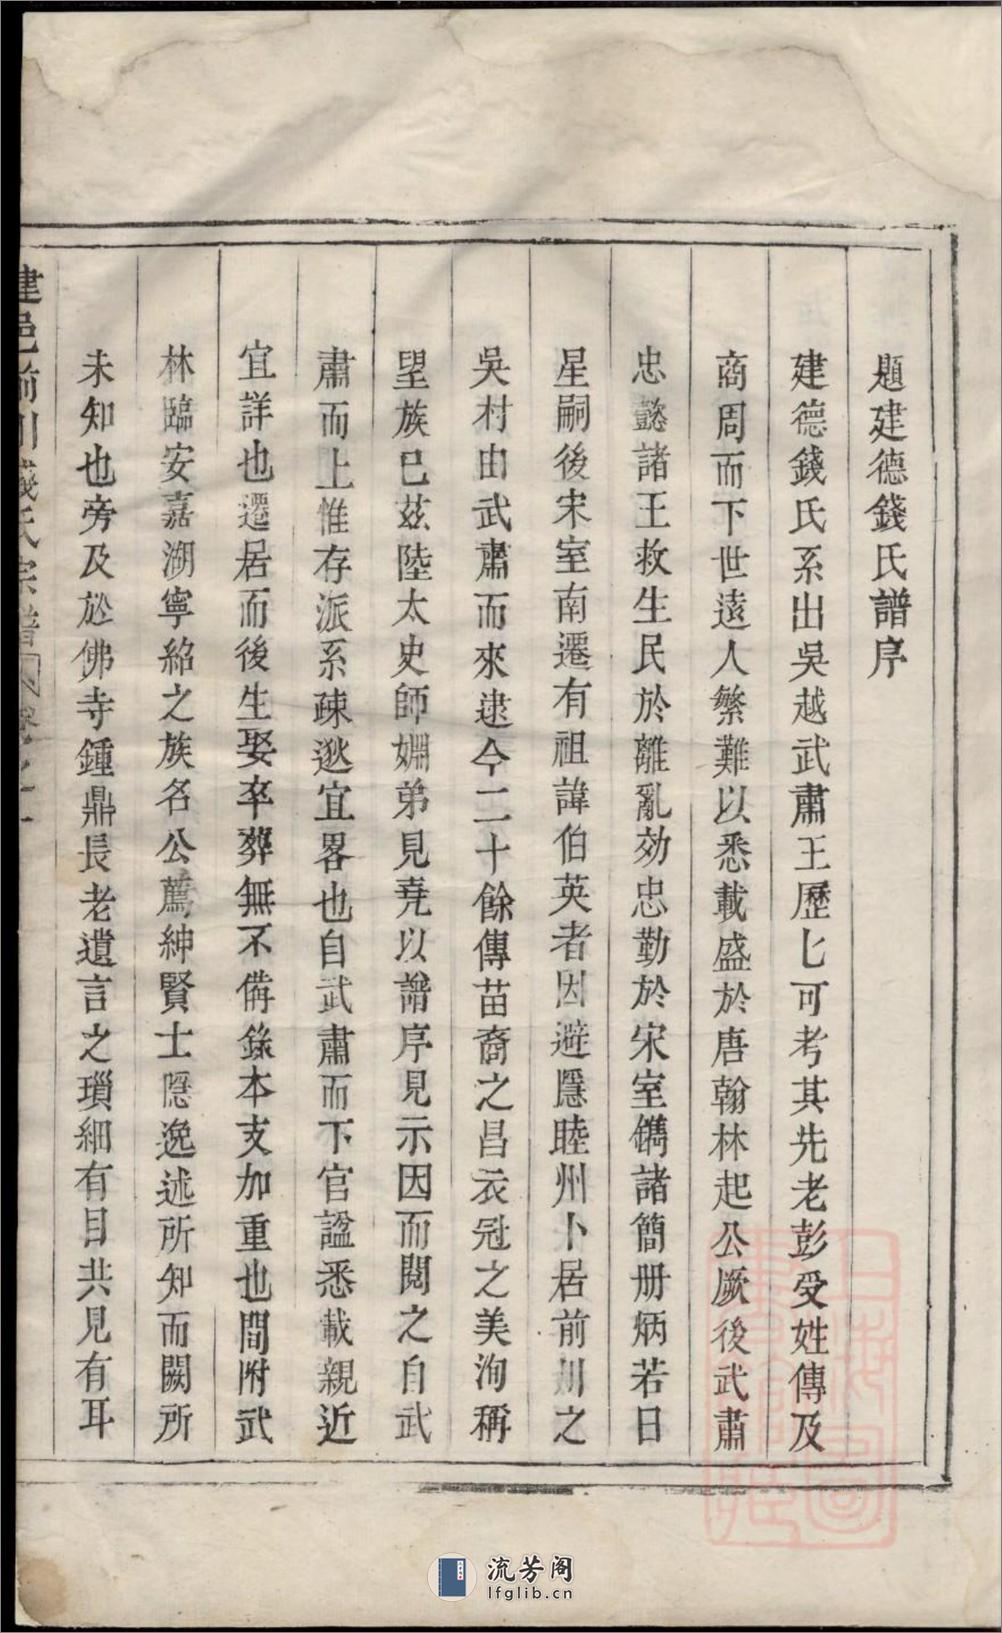 題建德錢氏譜序
建德錢氏系出吳越武肅王歷匕可考其先老彭受姓傳及
商周而下世遠人繁難以悉載盛於唐翰林起公厥後武肅
忠懿諸王救生民於離亂効忠勤於宋室鐫諸簡册炳若日
星嗣後宋室南遷有祖諱伯英者因避隱睦州卜居前川之
吳村由武肅而來逮今二十餘傳苗裔之昌衣冠之美洵稱
望族巳茲陸太史師㛰弟見堯以譜序見示因而閱之自武
肅而上惟存派系疎逖宜畧也自武肅而下官諡悉載親近
宜詳也遷居而後生娶卒葬無不備錄本支加重也間附武
林臨安嘉湖寧紹之族名公薦紳賢士隱逸述所知而闕所
未知也旁及於佛寺鍾鼎長老遺言之瑣細有目共見有耳
建邑前川錢氏宗譜 卷之一
上海圖書館藏
流芳阁
lfglib.cn